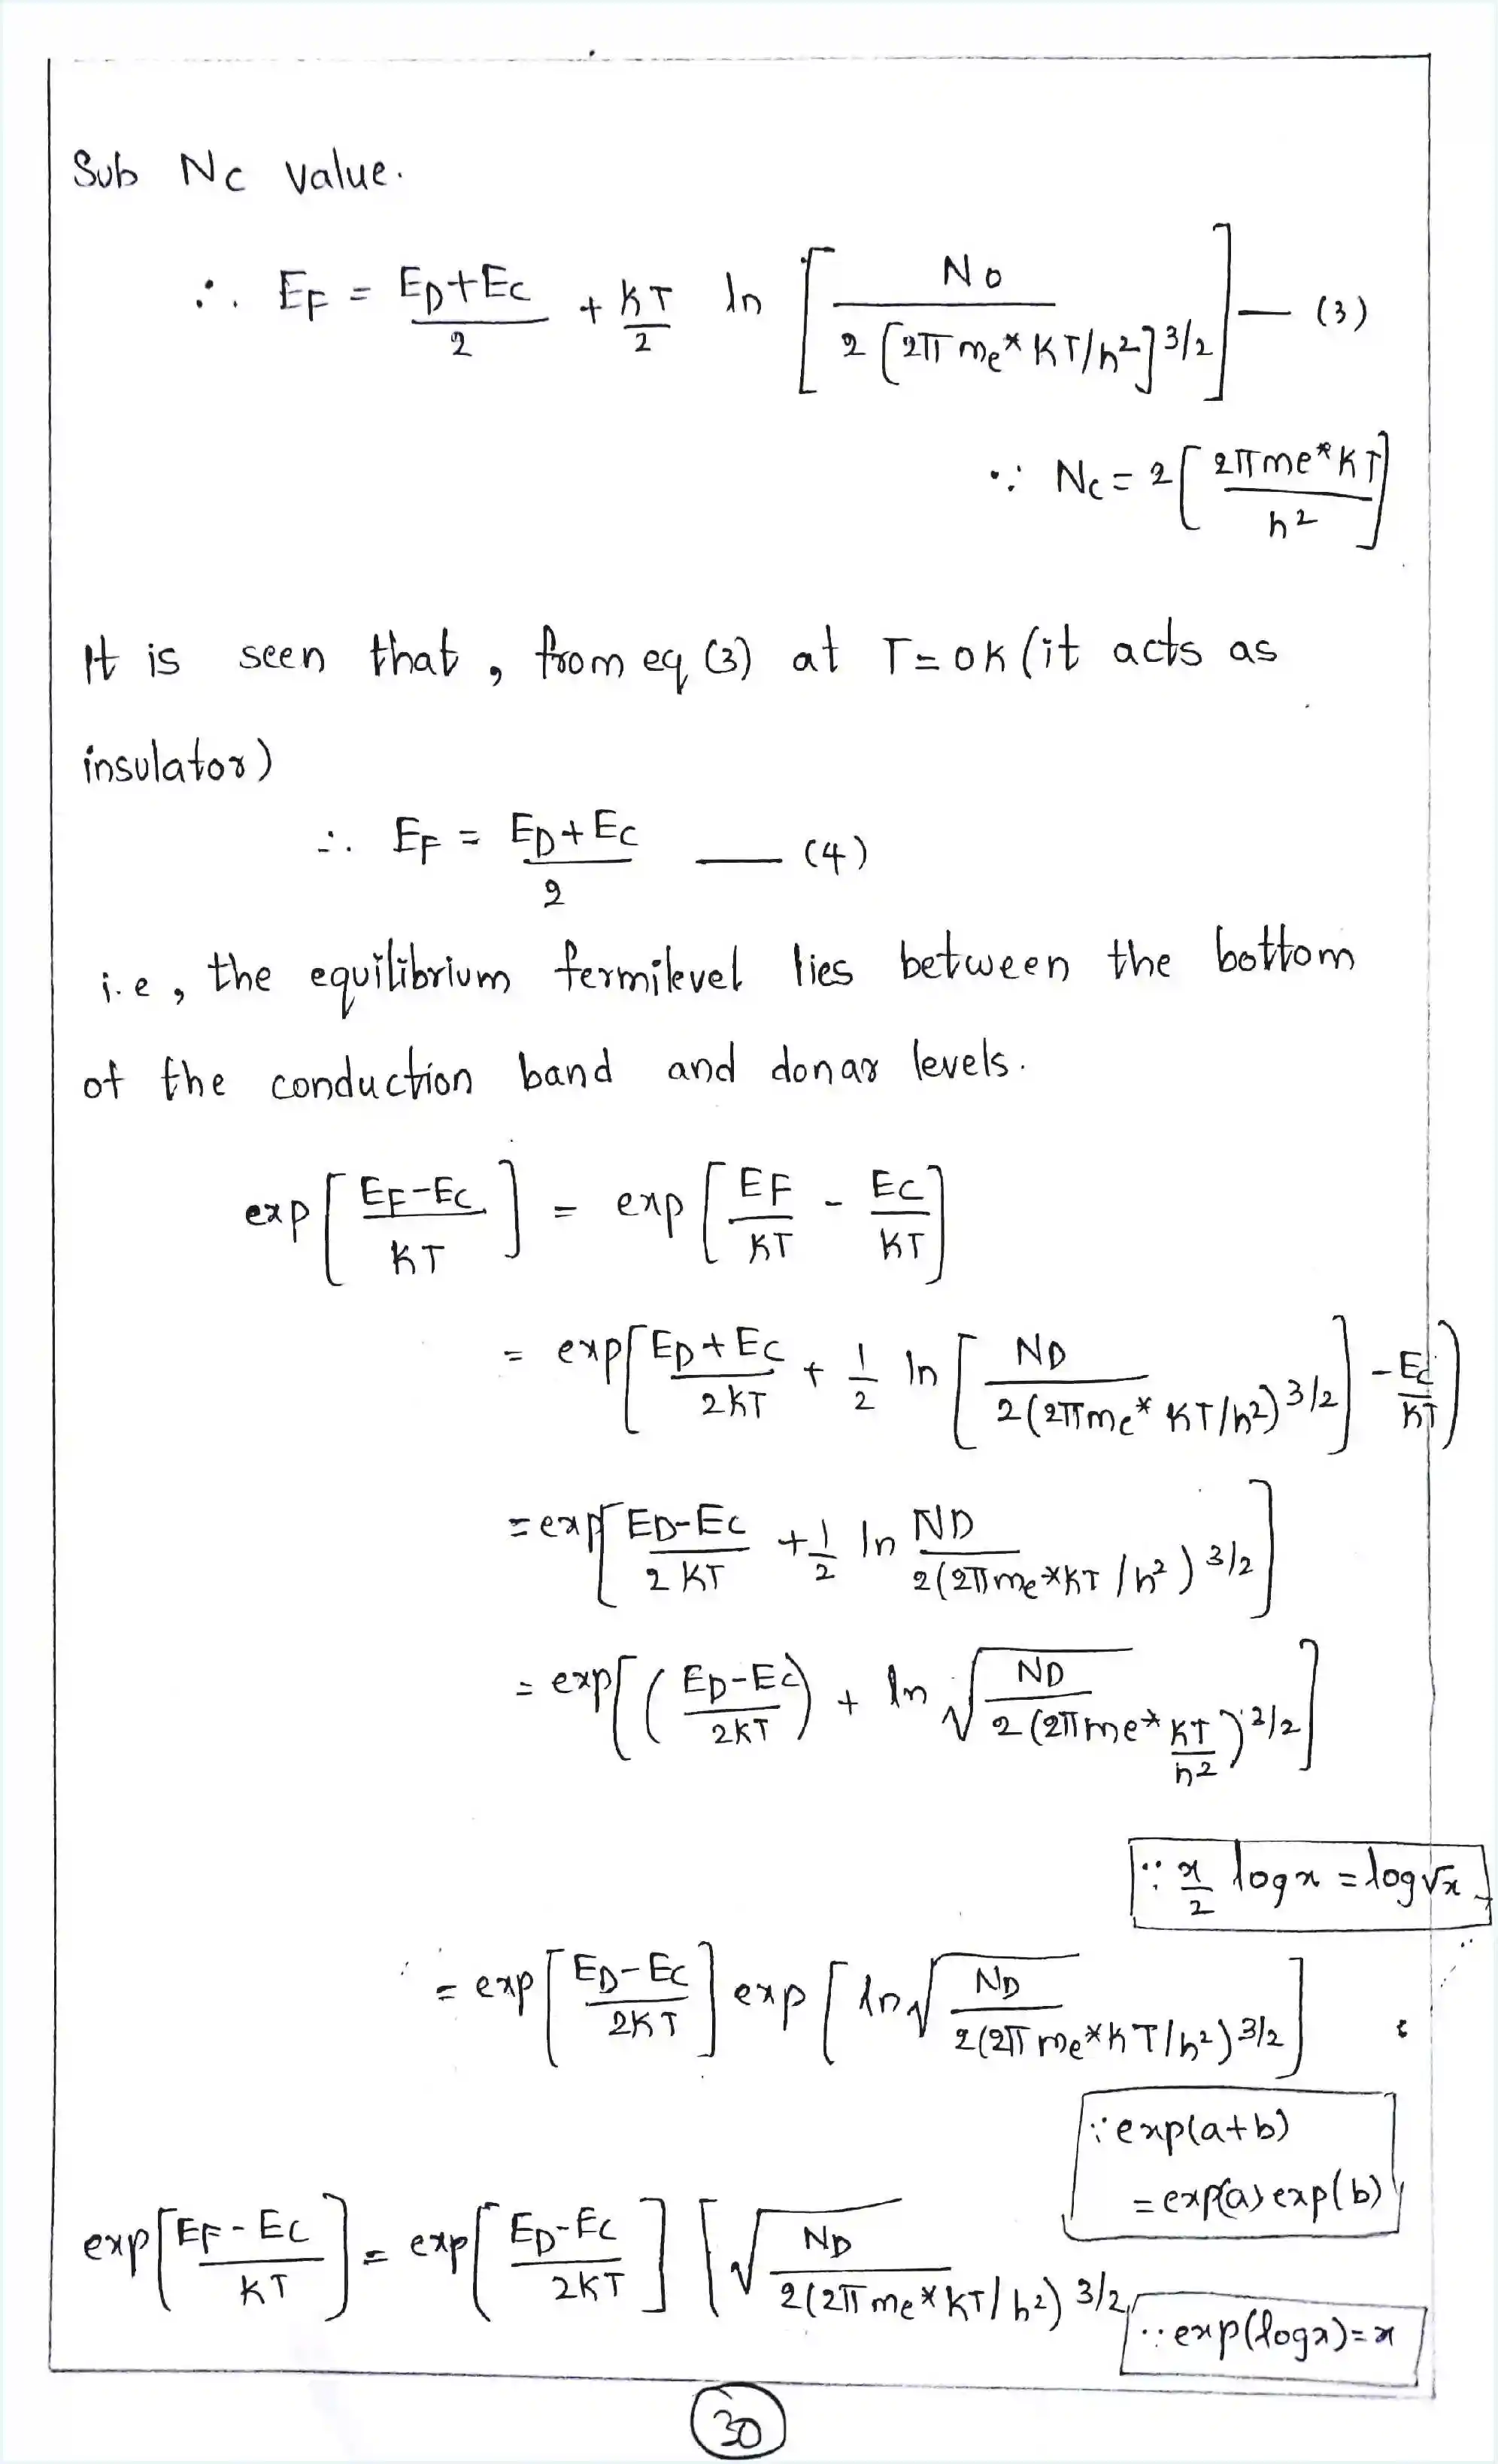 Sub Nc value.
∴ EF = ED+EC/2 + KT/2 ln [ No / 2 [2π me* KT/h²]^3/2 ] — (3)
∵ Nc = 2 [ 2πme* KT / h² ]
It is seen that , from eq (3) at T=0K (it acts as
insulator)
∴ EF = ED+EC/2 — (4)
i.e, the equilibrium fermilevel lies between the bottom
of the conduction band and donar levels.
exp [ EF-EC / KT ] = exp [ EF/KT - EC/KT ]
= exp [ ED+EC/2KT + 1/2 ln [ ND / 2(2πme* KT/h²)^3/2 ] - EC/KT )
= exp [ ED-EC/2KT + 1/2 ln ND / 2(2πme*KT/h²)^3/2 ]
= exp [ ( ED-EC/2KT ) + ln √ ND / 2(2πme* KT/h²)^2/2 ]
∵ x/2 log x = log √x
= exp [ ED-EC/2KT ] exp [ ln √ ND / 2(2π me*KT/h²)^3/2 ]
∵ exp(a+b)
= exp(a) exp(b)
exp [ EF-EC / KT ] = exp [ ED-EC / 2KT ] [ √ ND / 2(2π me* KT/h²)^3/2
∵ exp(logx)=x
30